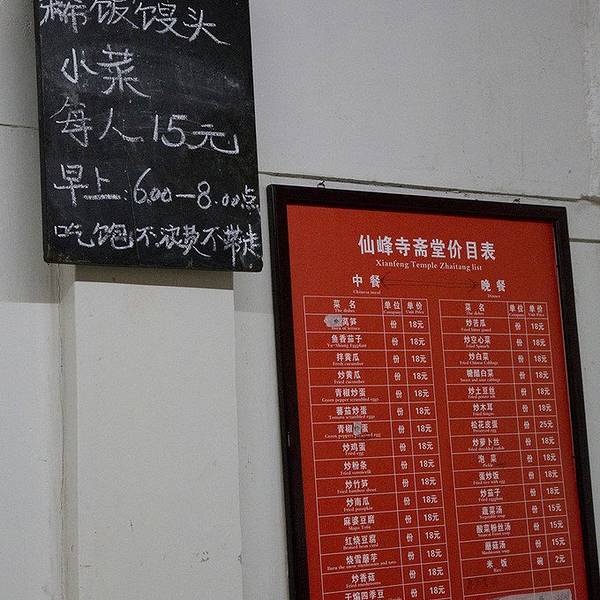 稀饭馒头
小菜
每人15元
早上:6.00—8.00点
吃饱不浪费不带走
仙峰寺斋堂价目表
Xianfeng Temple Zhaitang list
中餐
Chinese meal
晚餐
Dinner
菜 名 单位 单价
The dishes Company Unit Price
莴笋 份 18元
鱼香茄子 份 18元
Yu-Shiang Eggplant
拌黄瓜 份 18元
Fresh cucumber
炒黄瓜 份 18元
Fried cucumber
青椒炒蛋 份 18元
Green pepper scrambled eggs
蕃茄炒蛋 份 18元
Tomato scrambled eggs
青椒 蛋 份 18元
炒鸡蛋 份 18元
Fried egg
炒粉条 份 18元
Fried vermicelli
炒竹笋 份 18元
Fried bamboo shoot
炒南瓜 份 18元
Fried pumpkin
麻婆豆腐 份 18元
Mapo Tofu
红烧豆腐 份 18元
Braised bean curd
烧雪蘑芋 份 18元
炒香菇 份 18元
Fried mushrooms
干煸四季豆 份 18元
菜 名 单位 单价
The dishes Company Unit Price
炒苦瓜 份 18元
Fried bitter gourd
炒空心菜 份 18元
Fried Spinach
炒白菜 份 18元
Fried Chinese Cabbage
糖醋白菜 份 18元
Sweet and sour cabbage
炒土豆丝 份 18元
Fried potato silk
炒木耳 份 18元
Fried fungus
松花皮蛋 份 25元
Preserved egg
炒萝卜丝 份 18元
Fried shredded radish
泡 菜 份 18元
Pickle
蛋炒饭 份 18元
Fried rice with egg
炒茄子 份 18元
Fried eggplant
蔬菜汤 份 15元
Vegetable soup
酸菜粉丝汤 份 15元
蘑菇汤 份 15元
Mushroom soup
米 饭 碗 2元
Rice